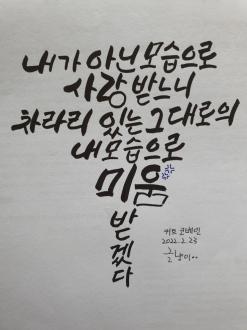 내가 아닌 모습으로
사랑 받느니
차라리 있는 그대로의
내 모습으로
미움
받
겠
다
커트 코베인
2022. 2. 23